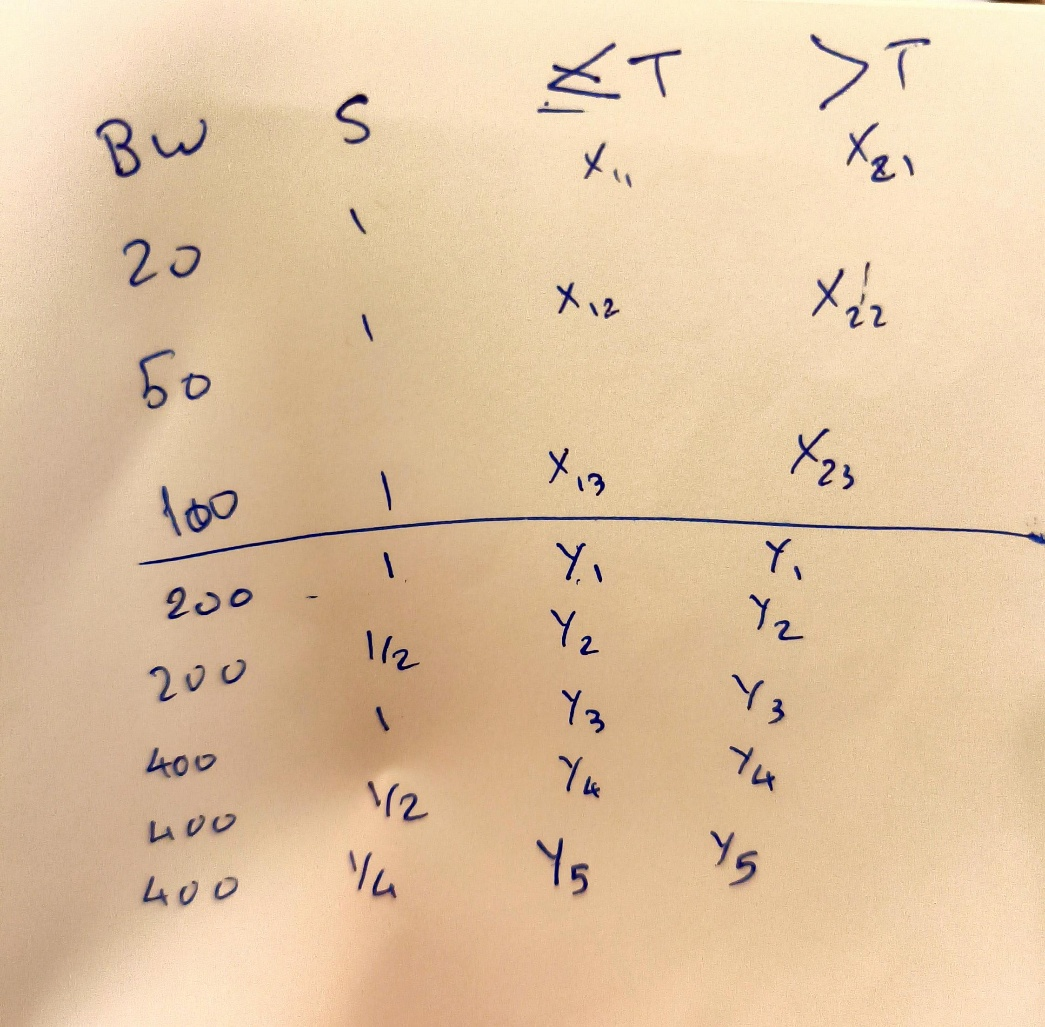 BW S ≤T >T
X₁₁ X₂₁
20 1
X₁₂ X₂₂
50 1
100 1 X₁₃ X₂₃
200 1 Y₁ Y₁
200 1/2 Y₂ Y₂
400 1 Y₃ Y₃
400 1/2 Y₄ Y₄
400 1/4 Y₅ Y₅